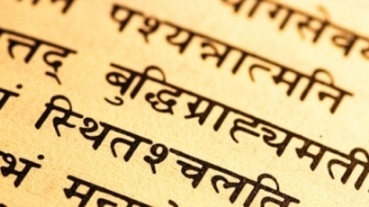 गसेवय
पश्यन्नात्मनि
त्तद् बुद्धिग्राह्यमती
स्थितश्चलति
भं